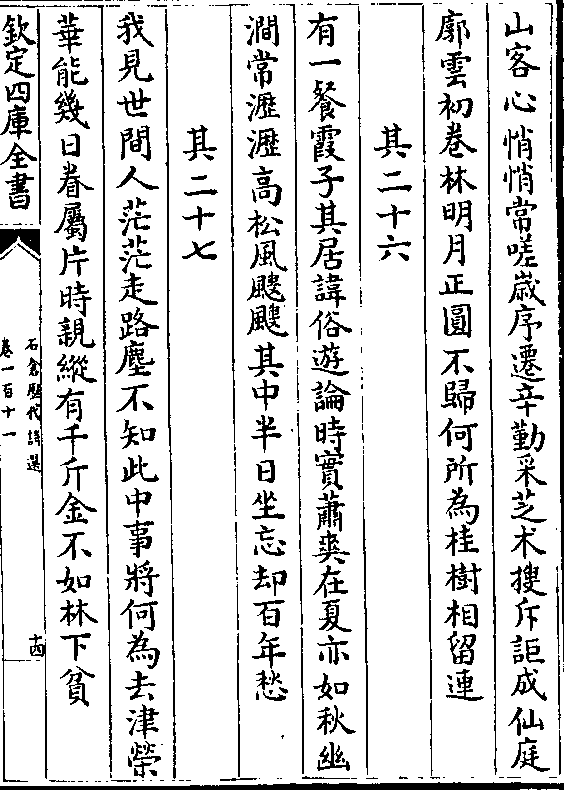 山客心悄悄常嗟歳序遷辛勤采芝朮搜斥詎成仙庭
廓雲初卷林明月正圓不歸何所為桂樹相留連
其二十六
有一餐霞子其居諱俗遊論時實蕭爽在夏亦如秋幽
澗常瀝瀝高松風颼颼其中半日坐忘却百年愁
其二十七
我見世間人茫茫走路塵不知此中事將何為去津榮
華能幾日眷屬片時親縱有千斤金不如林下貧
欽定四庫全書
石倉歷代詩選
卷一百十一
十四